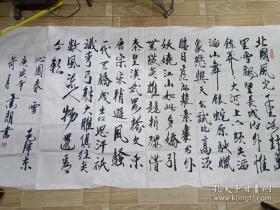 北國風光千里冰封萬
里雪飄望長城內外惟
餘莽莽大河上下頓失滔
滔山舞銀蛇原馳蠟
象欲與天公試比高須
晴日看紅妝素裹分外
妖嬈江山如此多嬌引
無數英雄競折腰惜
秦皇漢武略輸文采
唐宗宋祖稍遜風騷
一代天驕成吉思汗祇
識彎弓射大雕俱往矣
數風流人物還看
今朝
沁園春 雪 毛澤東